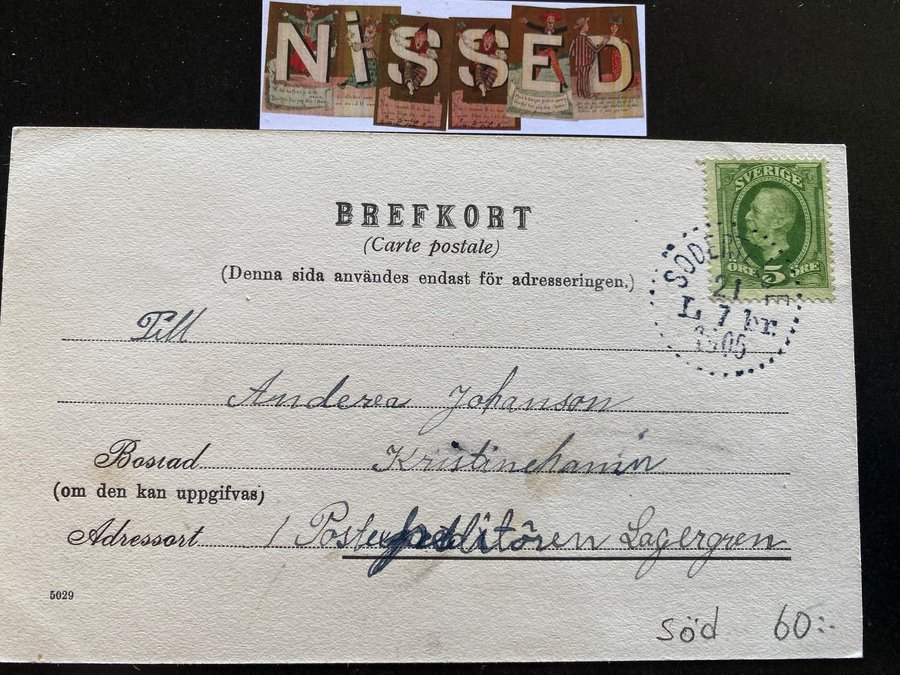 NISSED
BREFKORT
(Carte postale)
(Denna sida användes endast för adresseringen.)
SVERIGE
ÖRE 5 ÖRE
21
L. 7 br.
1906
Till
Anderea Johanson
Bostad Kristinehamn
(om den kan uppgifvas)
Adressort / Postexpeditören Lagergren
5029
söd 60:-